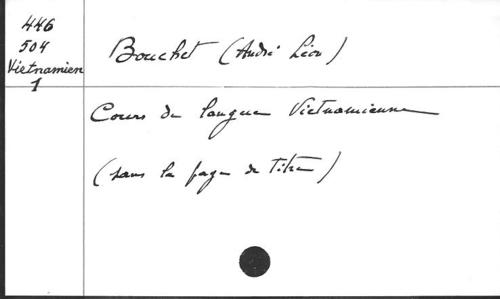 446
504
Vietnamien
1
Bouchet (André Léon)
Cours de langue Vietnamienne
(sans la page de Titre)